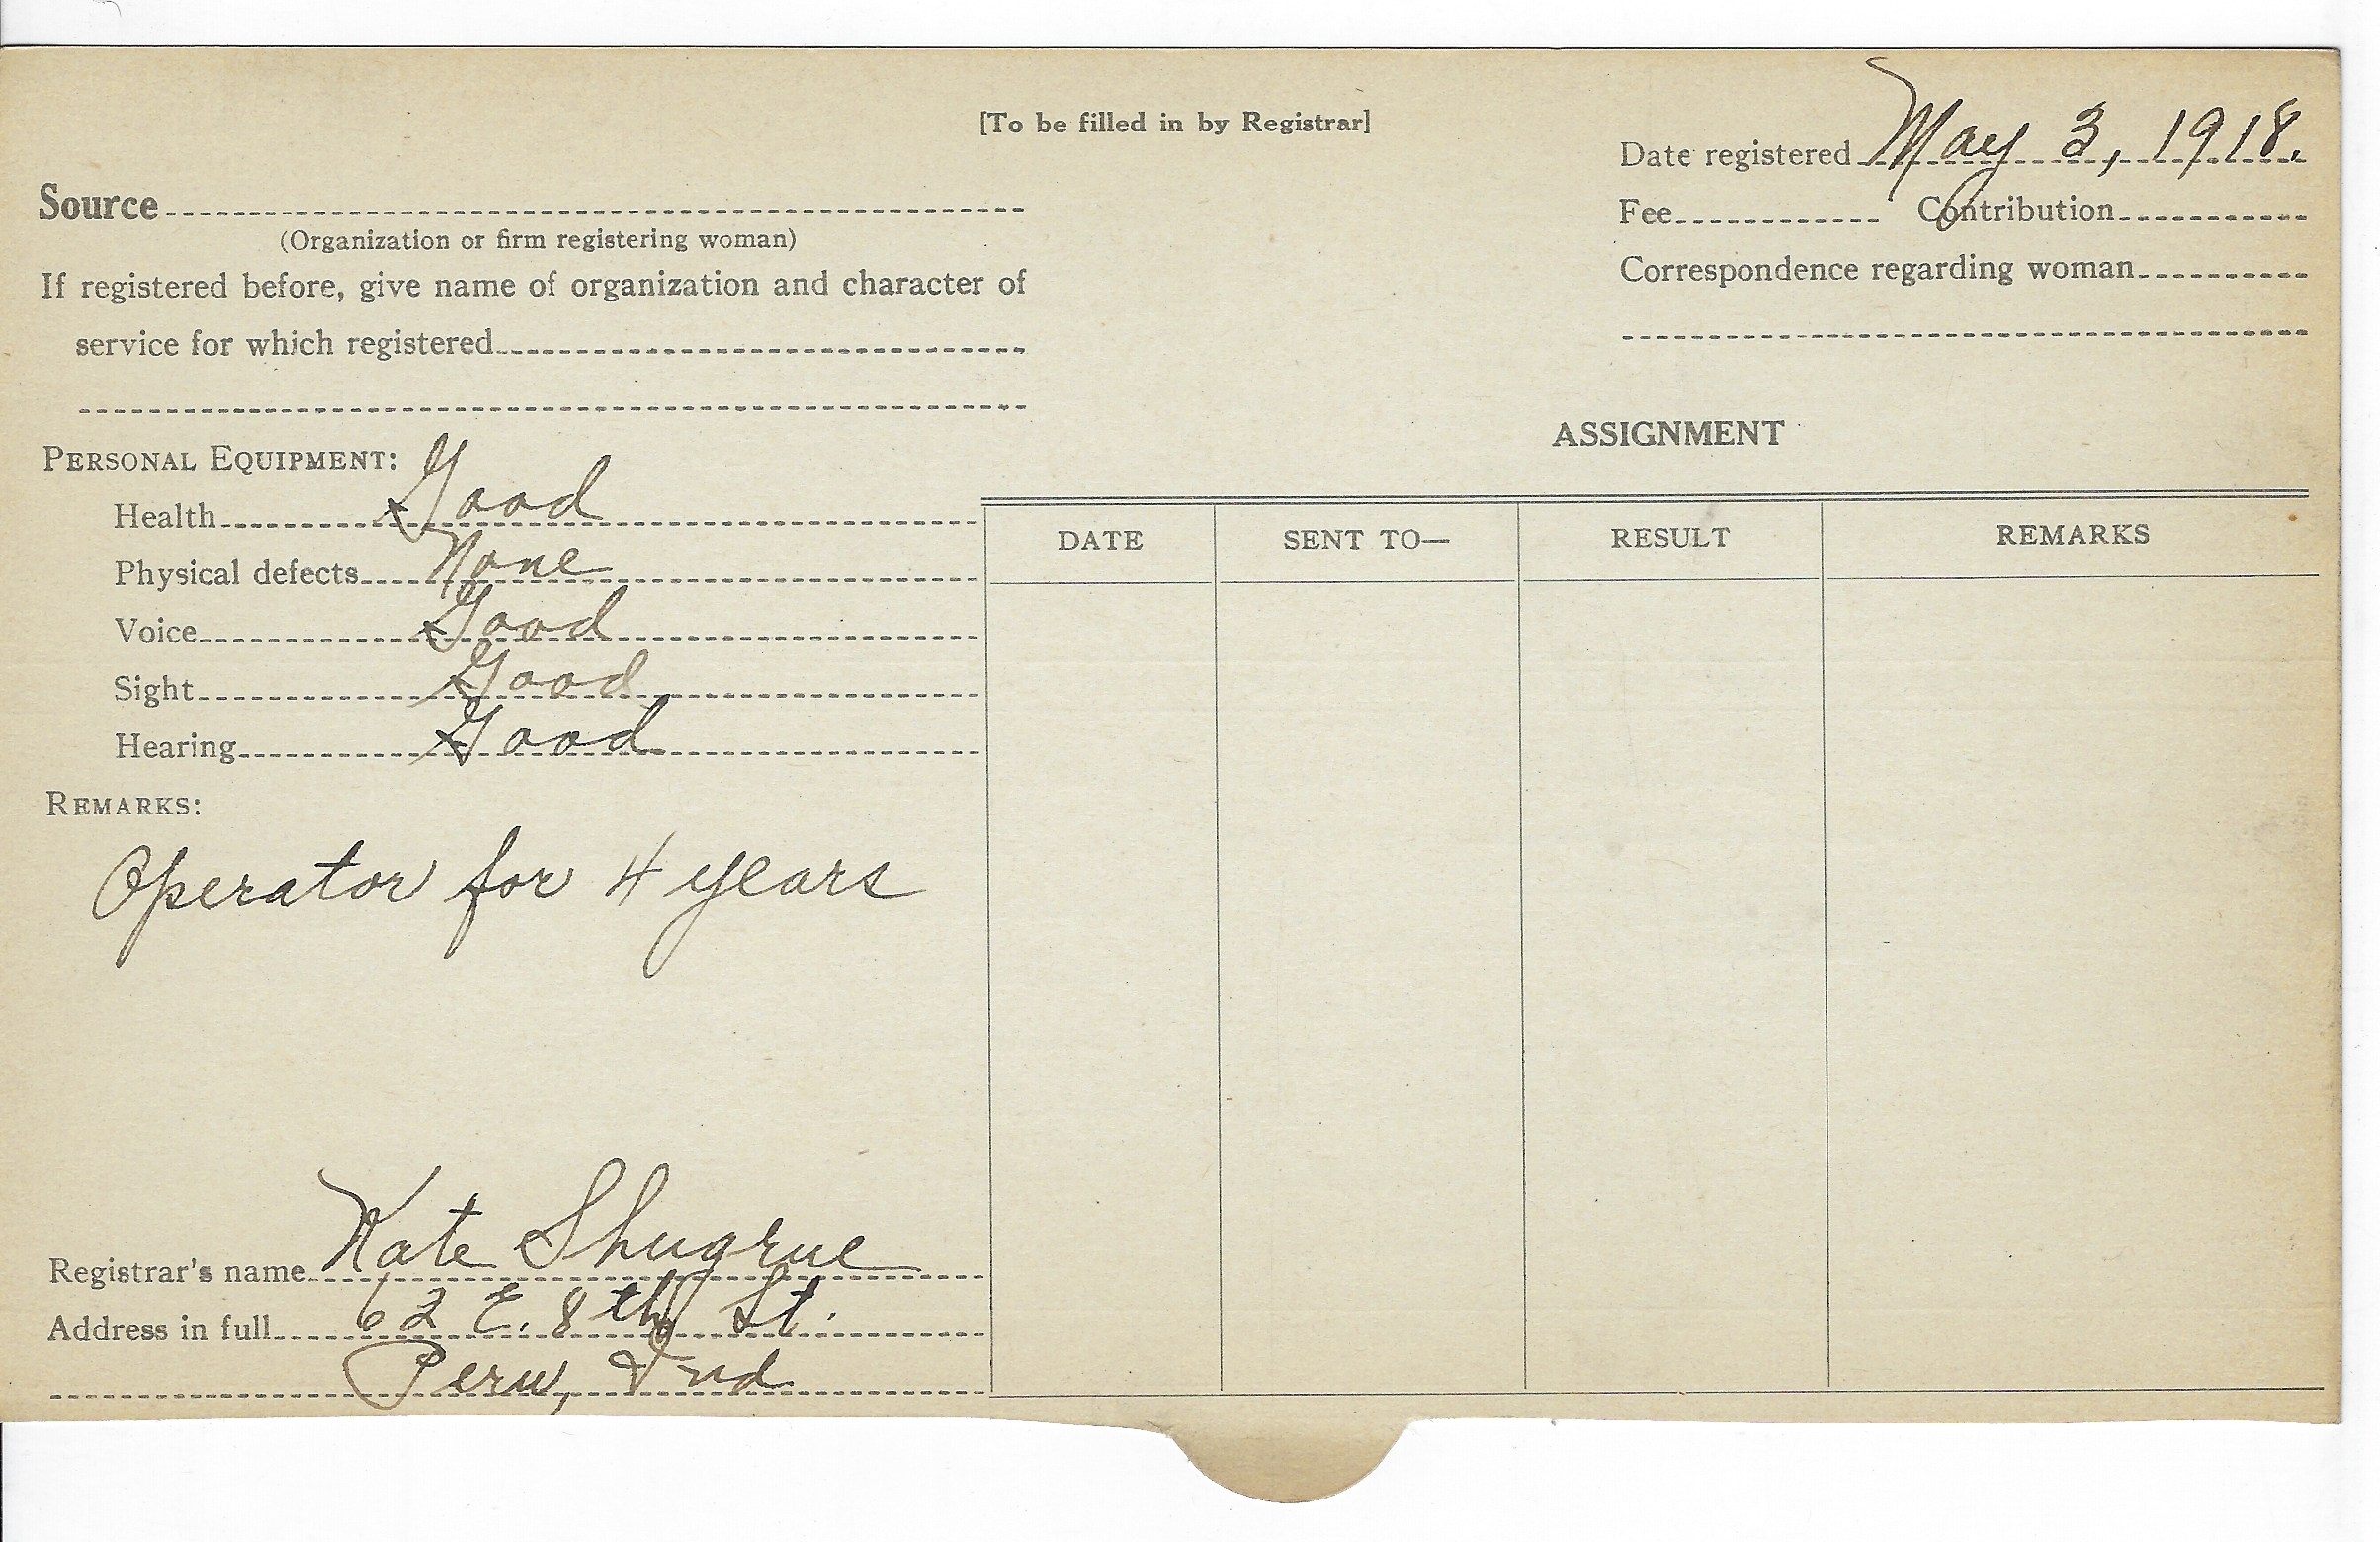 [To be filled in by Registrar]
Date registered May 3, 1918.
Source
(Organization or firm registering woman)
Fee Contribution
If registered before, give name of organization and character of
service for which registered
Correspondence regarding woman
PERSONAL EQUIPMENT:
Health Good
Physical defects None
Voice Good
Sight Good
Hearing Good
REMARKS:
Operator for 4 years
Registrar's name Kate Shugrue
Address in full 62 E. 8th St.
Peru, Ind
ASSIGNMENT
DATE SENT TO— RESULT REMARKS